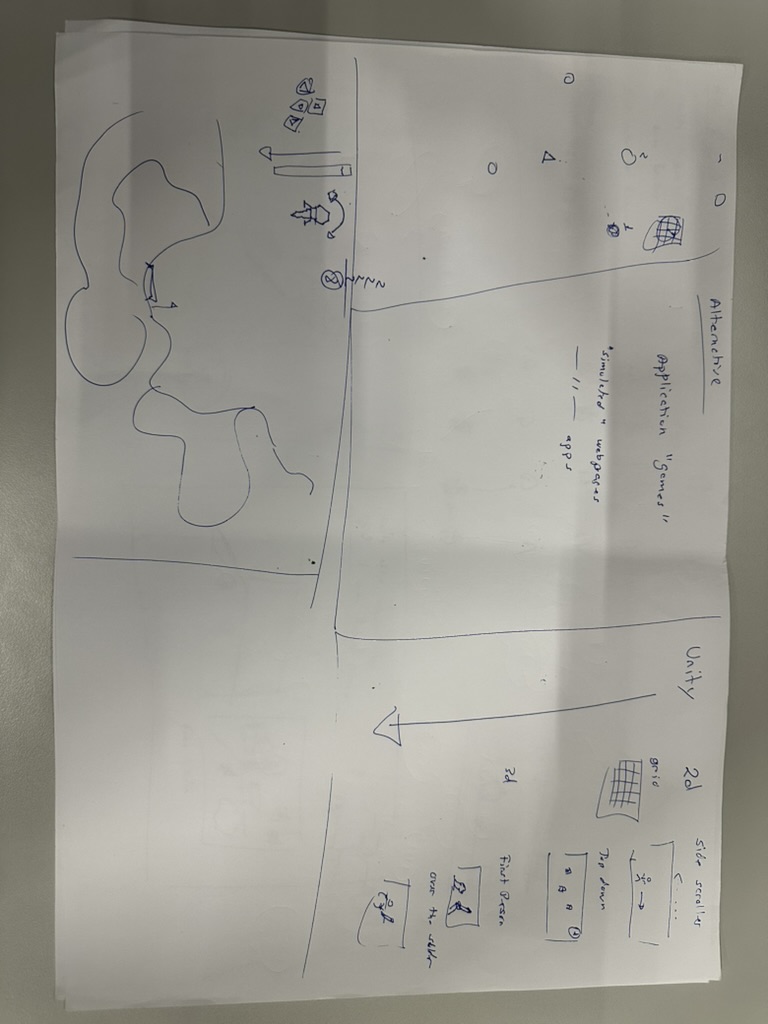 Alternative
Application "games"
"simulated" webpages
— 11 — apps
Unity
2d
grid
Side scroller
Top down
3d
First Person
over the